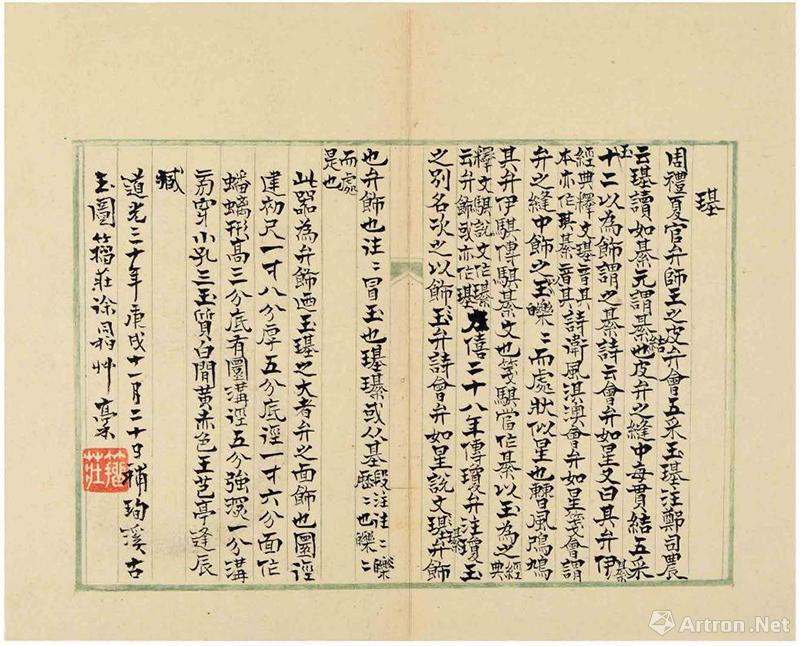 璂
周禮夏官弁師王之皮弁會五采玉璂注鄭司農
云璂讀如綦元謂綦結也皮弁之縫中每貫結五采
玉十二以為飾謂之綦詩云會弁如星又曰其弁伊綦
經典釋文璂音其本亦作琪綦音其詩衛風淇澳會弁如星箋會謂
弁之縫中飾之玉皪〻而處狀似星也曹風鳲鳩
其弁伊騏傳騏綦文也箋騏當作綦以玉為之經典
釋文騏說文作璂云弁飾或亦作璂僖二十八年傳瓊弁注瓊玉
之別名次之以飾玉弁詩會弁如星說文琪璂弁飾
也弁飾也往〻冒玉也璂璂或从基段注往〻歷〻也皪〻
而處是也
此器為弁飾迺玉璂之大者弁之面飾也圜徑
建初尺一寸八分厚五分底徑一寸六分面作
蟠螭形高三分底有圜溝徑五分強深一分溝
旁穿小孔三玉質白間黃赤色王芑亭逢辰
臧
道光三十年庚戌十一月二十日補珣溪古
玉圖籀莊徐同柏艸稾
籀莊
雅昌藝術網
Artron.Net